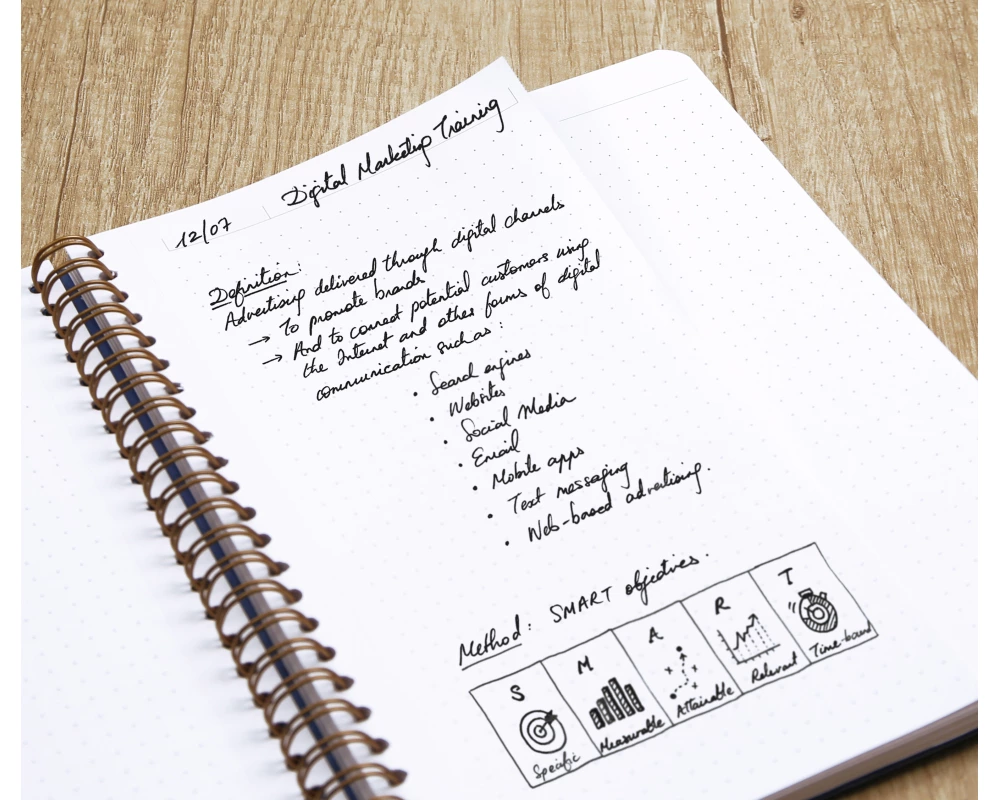 Digital Marketing Training
12/07
Definition:
Advertising delivered through digital channels
→ To promote brands
→ And to connect potential customers using
the Internet and other forms of digital
communication such as:
• Search engines
• Websites
• Social Media
• Email
• Mobile apps
• Text messaging
• Web-based advertising.
Method: SMART objectives.
S M A R T
Specific Measurable Attainable Relevant Time-bound